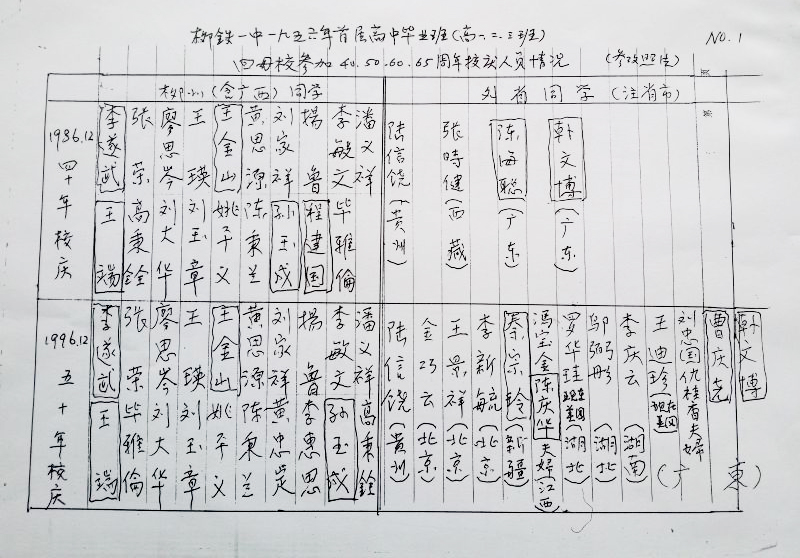 柳铁一中一九五六年首届高中毕业班(高一.二.三班)
回母校参加40.50.60.65周年校庆人员情况
(参考照片)
NO.1
柳州(含广西)同学
外省同学(注省市)
1986.12
四十年校庆
李遂武
张荣
廖思岑
王瑛
王金山
黄思源
刘家祥
杨鲁
李敏文
潘义祥
王瑞
高秉铨
刘大华
刘玉章
姚子义
陈秉兰
孙玉成
程建国
毕雅倫
陆信饶(贵州)
張時健(西藏)
陈海聪(广东)
韩文博(广东)
1996.12
五十年校庆
李遂武
张荣
廖思岑
王瑛
王金山
黄思源
刘家祥
杨鲁
李敏文
潘义祥
王瑞
毕雅倫
刘大华
刘玉章
姚子义
陈秉兰
黄忠定
李惠思
孙玉成
高秉銓
陆信饶(贵州)
金巧云(北京)
王景祥(北京)
李新毓(北京)
秦宗岭(新疆)
冯宝金陈庆华夫婦(江西)
罗华珪现在美国(湖北)
邬弼彤(湖北)
李庆云(湖南)
王迪珍(现在美国)
刘忠国仇桂香夫婦
曹庆尧
韩文博
(广东)